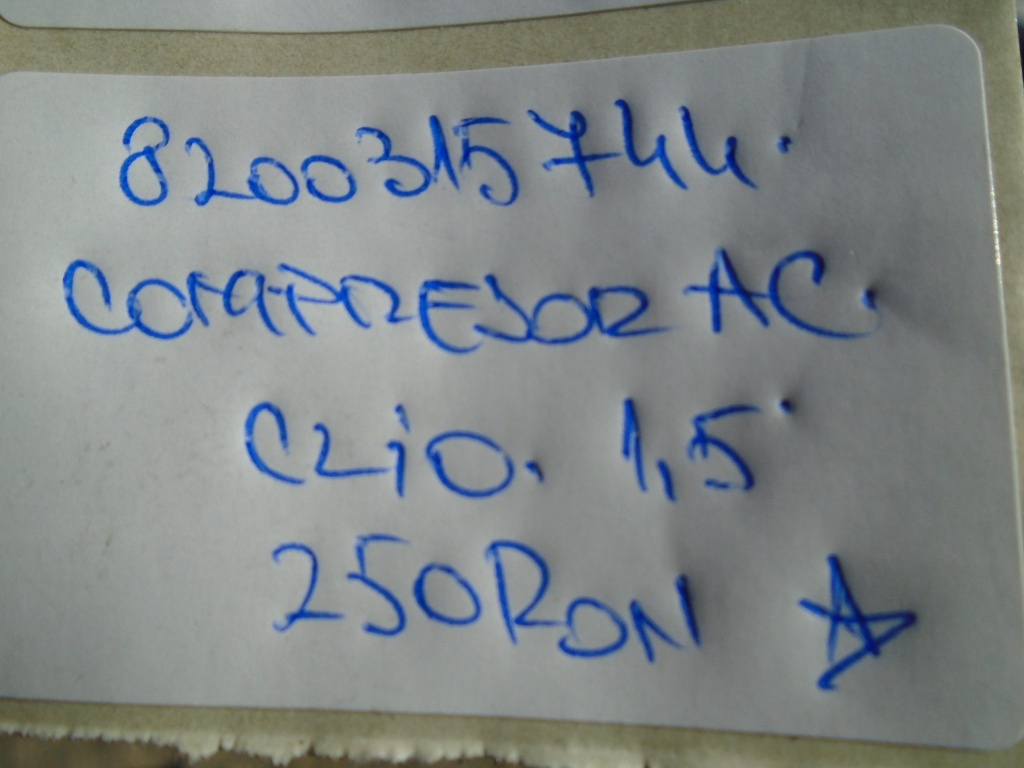 8200315744.
COMPRESOR AC.
CLIO. 1,5
250 RON